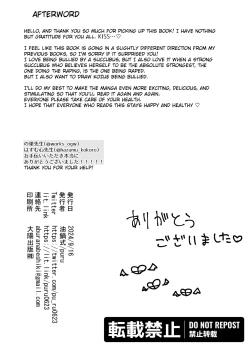 AFTERWORD
HELLO, AND THANK YOU SO MUCH FOR PICKING UP THIS BOOK! I HAVE NOTHING
BUT GRATITUDE FOR YOU ALL. KISS~♡
I FEEL LIKE THIS BOOK IS GOING IN A SLIGHTLY DIFFERENT DIRECTION FROM MY
PREVIOUS BOOKS, SO I'M SORRY IF IT SURPRISED YOU!
I LOVE BEING BULLIED BY A SUCCUBUS, BUT I ALSO LOVE IT WHEN A STRONG
SUCCUBUS WHO BELIEVES HERSELF TO BE THE ABSOLUTE STRONGEST, THE
ONE DOING THE RAPING, IS THE ONE BEING RAPED.
BUT I ALSO WANT TO DRAW SCUBUS BEING BULLIED.
I'LL DO MY BEST TO MAKE THE MANGA EVEN MORE EXCITING, DELICIOUS, AND
STIMULATING SO THAT YOU'LL READ IT AGAIN AND AGAIN.
EVERYONE PLEASE TAKE CARE OF YOUR HEALTH.
I HOPE THAT EVERYONE WHO READS THIS STAYS HAPPY AND HEALTHY ♡
はすむ心先生(@hazumu_kokoro)
お手伝いいただき本当に
ありがとうございました!!!!!
THANK YOU FOR YOUR HELP!
発行日 2024/9/16
発行者 油鍋式/puru
Twitter https://twitter.com/pu_ru0623
lit.link https://lit.link/puru0623
連絡先
印刷所 大陽出版㈱
ありがとう
ございました♡
転載禁止 DO NOT REPOST
禁止转载